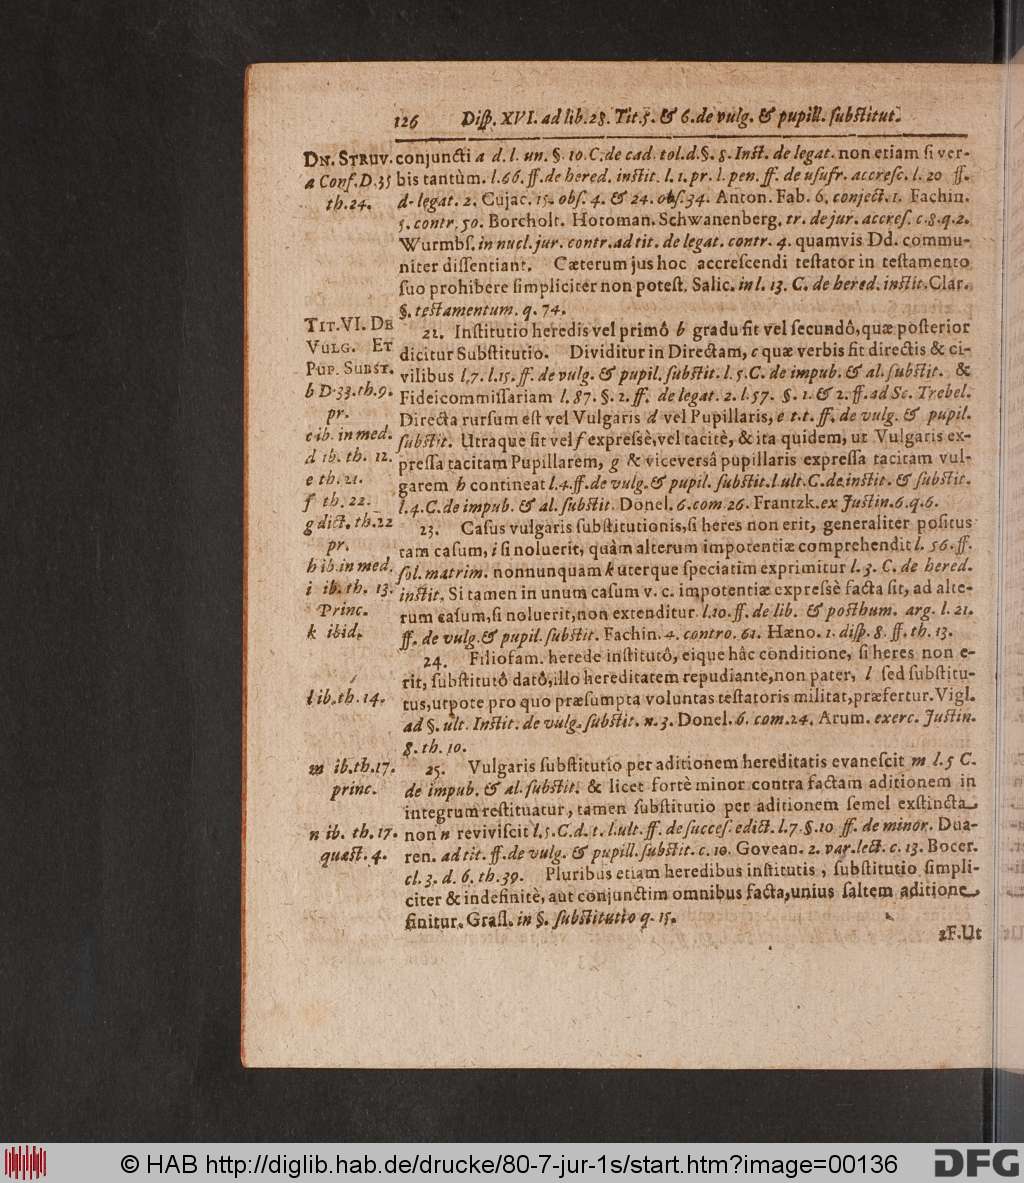 126 Disp. XVI. ad lib. 28. Tit. 5. & 6. de vulg. & pupill. substitut.
DN. STRUV.
a Conf. D. 35
th. 24.
conjuncti a d. l. un. §. 10. C. de cad. tol. d. §. 8. Inst. de legat. non etiam si ver-
bis tantùm. l. 66. ff. de hered. instit. l. 1. pr. l. pen. ff. de usufr. accresc. l. 20 ff.
de legat. 2. Cujac. 15. obs. 4. & 24. obs. 34. Anton. Fab. 6. conject. 1. Fachin.
5. contr. 50. Borcholt. Hotoman. Schwanenberg. tr. de jur. accres. c. 8. q. 2.
Wurmbs. in nucl. jur. contr. ad tit. de legat. contr. 4. quamvis Dd. commu-
niter dissentiant. Cæterum jus hoc accrescendi testator in testamento
suo prohibere simpliciter non potest. Salic. in l. 13. C. de hered. instit. Clar.
§. testamentum. q. 74.
TIT. VI. DE
VULG. ET
PUP. SUBST.
b D. 33. th. 9.
pr.
c ib. in med.
d ib. th. 12.
e th. 21.
f th. 22.
g dict. th. 22
pr.
h ib. in med.
i ib. th. 13.
Princ.
k ibid.
22. Institutio heredis vel primô b gradu fit vel secundô, quæ posterior
dicitur Substitutio. Dividitur in Directam, c quæ verbis fit directis & ci-
vilibus l. 7. l. 15. ff. de vulg. & pupil. substit. l. 5. C. de impub. & al. substit. &
Fideicommissariam l. 87. §. 2. ff. de legat. 2. l. 57. §. 1. & 2. ff. ad Sc. Trebel.
Directa rursum est vel Vulgaris d vel Pupillaris, e t. t. ff. de vulg. & pupil.
substit. Utraque fit vel f expressè, vel tacitè, & ita quidem, ut Vulgaris ex-
pressa tacitam Pupillarem, g & viceversâ pupillaris expressa tacitam vul-
garem h contineat l. 4. ff. de vulg. & pupil. substit. l. ult. C. de instit. & substit.
l. 4. C. de impub. & al. substit. Donel. 6. com 26. Frantzk. ex Justin. 6. q. 6.
23. Casus vulgaris substitutionis, si heres non erit, generaliter positus
tam casum, i si noluerit, quàm alterum impotentiæ comprehendit l. 56. ff.
sol. matrim. nonnunquam k uterque speciatim exprimitur l. 3. C. de hered.
instit. Si tamen in unum casum v. c. impotentiæ expressè facta sit, ad alte-
rum casum, si noluerit, non extenditur l. 10. ff. de lib. & posthum. arg. l. 21.
ff. de vulg. & pupil. substit. Fachin. 4. contro. 61. Hæno. 1. disp. 8. ff. th. 13.
l ib. th. 14.
24. Filiofam. herede institutô, eique hâc conditione, si heres non e-
rit, substitutô datô, illo hereditatem repudiante, non pater, l sed substitu-
tus, utpote pro quo præsumpta voluntas testatoris militat, præfertur. Vigl.
ad §. ult. Instit. de vulg. substit. n. 3. Donel. 6. com. 24. Arum. exerc. Justin.
8. th. 10.
m ib. th. 17.
princ.
n ib. th. 17.
quæst. 4.
25. Vulgaris substitutio per aditionem hereditatis evanescit m l. 5 C.
de impub. & al. substit. & licet fortè minor contra factam aditionem in
integrum restituatur, tamen substitutio per aditionem semel exstincta
non n reviviscit l. 5. C. d. t. l. ult. ff. de succes. edict. l. 7. §. 10 ff. de minor. Dua-
ren. ad tit. ff. de vulg. & pupill. substit. c. 10. Govean. 2. var. lect. c. 13. Bocer.
cl. 3. d. 6. th. 39. Pluribus etiam heredibus institutis, substitutio simpli-
citer & indefinitè, aut conjunctim omnibus facta, unius saltem aditione
finitur. Grass. in §. substitutio q. 15.
2F. Ut
© HAB http://diglib.hab.de/drucke/80-7-jur-1s/start.htm?image=00136
DFG